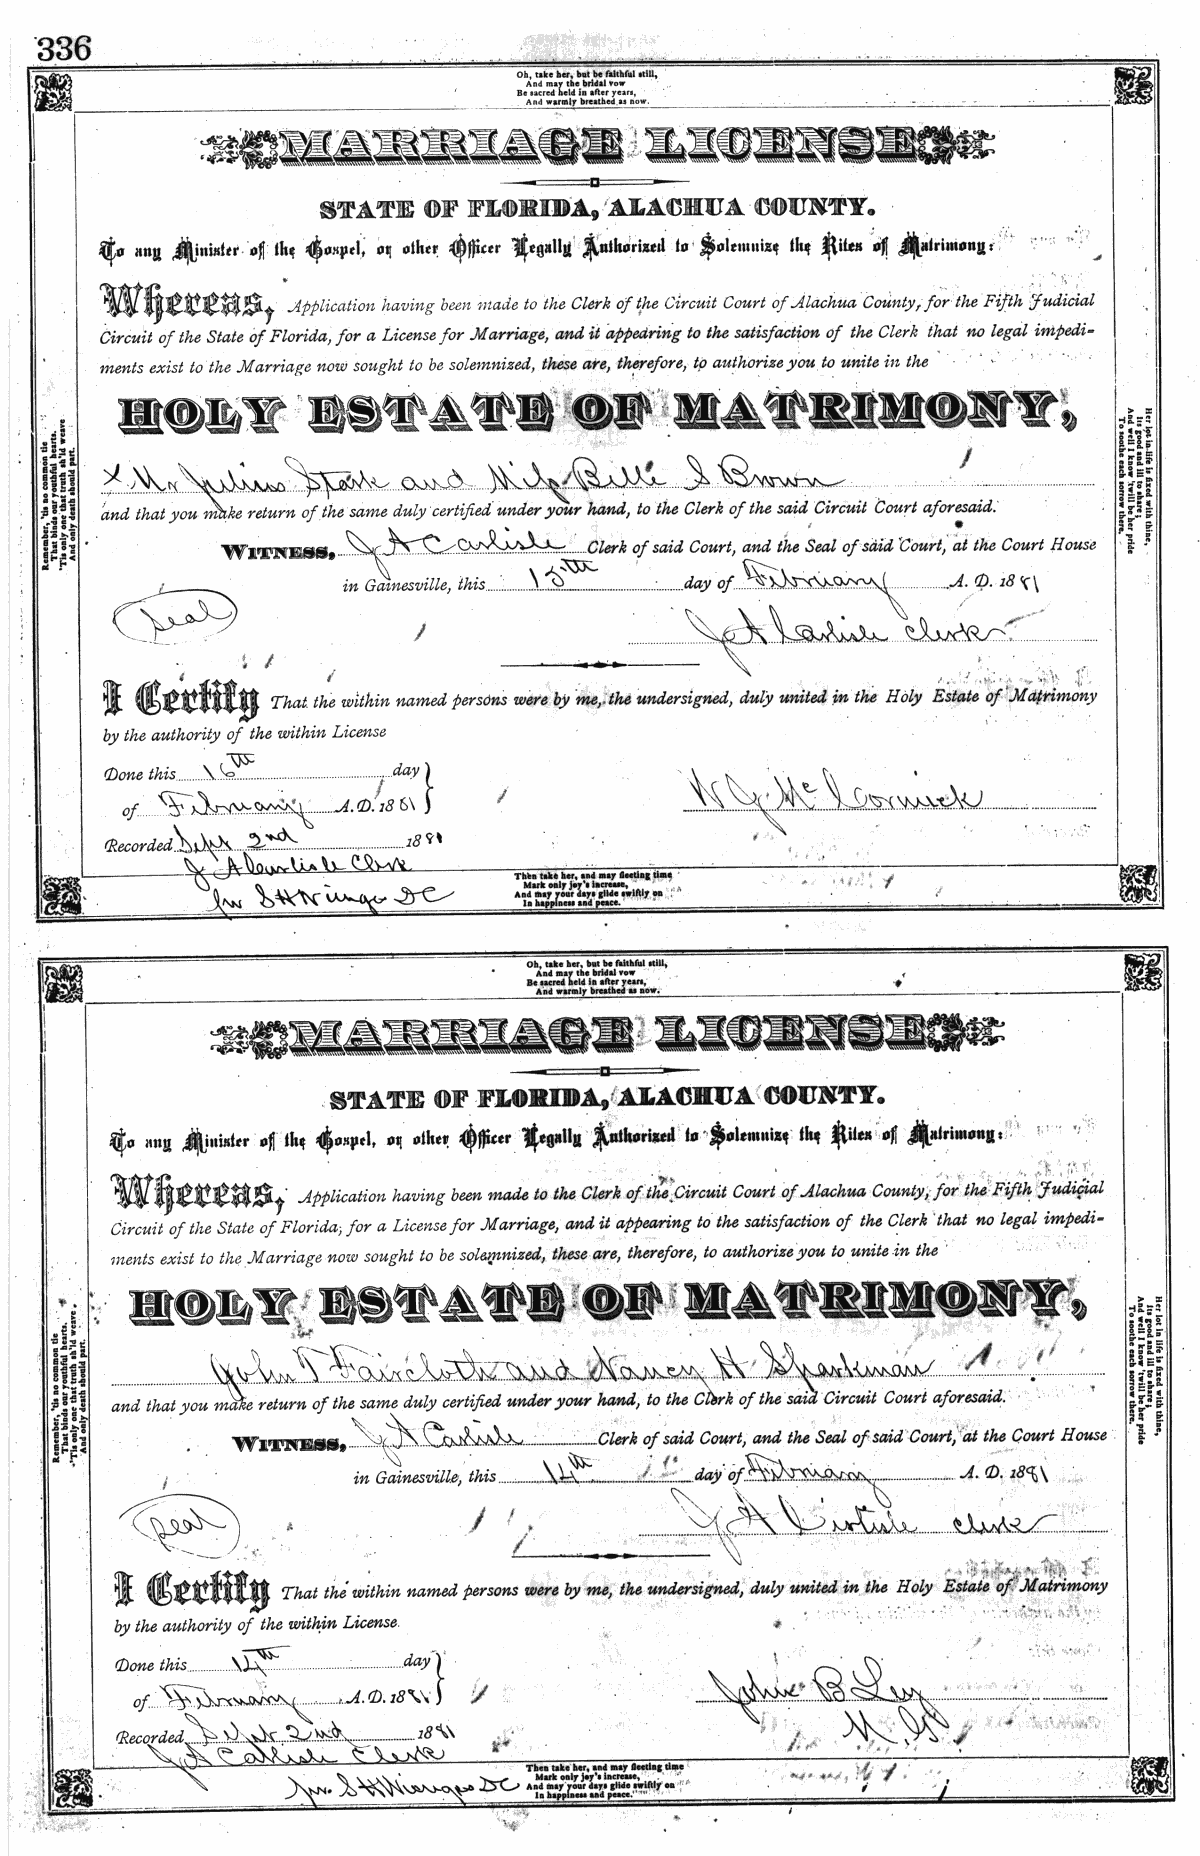 336
Oh, take her, but be faithful still,
And may the bridal vow
Be sacred held in after years,
And warmly breathed as now.
MARRIAGE LICENSE
STATE OF FLORIDA, ALACHUA COUNTY.
To any Minister of the Gospel, or other Officer Legally Authorized to Solemnize the Rites of Matrimony:
Whereas, Application having been made to the Clerk of the Circuit Court of Alachua County, for the Fifth Judicial
Circuit of the State of Florida, for a License for Marriage, and it appearing to the satisfaction of the Clerk that no legal impedi-
ments exist to the Marriage now sought to be solemnized, these are, therefore, to authorize you to unite in the
HOLY ESTATE OF MATRIMONY,
x Mr Julius Stark and Miss Belle S Brown
and that you make return of the same duly certified under your hand, to the Clerk of the said Circuit Court aforesaid.
WITNESS, J A Carlisle Clerk of said Court, and the Seal of said Court, at the Court House
in Gainesville, this 15th day of February A. D. 1881
Seal
J A Carlisle Clerk
I Certify That the within named persons were by me, the undersigned, duly united in the Holy Estate of Matrimony
by the authority of the within License
Done this 16th day
of February A.D. 1881
W G McCormick
Recorded Sept 2nd 1881
J A Carlisle Clerk
pr S H Wienges DC
Then take her, and may fleeting time
Mark only joy's increase,
And may your days glide swiftly on
In happiness and peace.
Remember, 'tis no common tie
That binds our youthful hearts.
'Tis only one that truth sh'ld weave
And only death should part.
Her lot in life is fixed with thine,
Its good and ill to share;
And well I know 'twill be her pride
To soothe each sorrow there.
Oh, take her, but be faithful still,
And may the bridal vow
Be sacred held in after years,
And warmly breathed as now.
MARRIAGE LICENSE
STATE OF FLORIDA, ALACHUA COUNTY.
To any Minister of the Gospel, or other Officer Legally Authorized to Solemnize the Rites of Matrimony:
Whereas, Application having been made to the Clerk of the Circuit Court of Alachua County, for the Fifth Judicial
Circuit of the State of Florida, for a License for Marriage, and it appearing to the satisfaction of the Clerk that no legal impedi-
ments exist to the Marriage now sought to be solemnized, these are, therefore, to authorize you to unite in the
HOLY ESTATE OF MATRIMONY,
John T Faircloth and Nancy H Sparkman
and that you make return of the same duly certified under your hand, to the Clerk of the said Circuit Court aforesaid.
WITNESS, J A Carlisle Clerk of said Court, and the Seal of said Court, at the Court House
in Gainesville, this 14th day of February A. D. 1881
Seal
J A Carlisle Clerk
I Certify That the within named persons were by me, the undersigned, duly united in the Holy Estate of Matrimony
by the authority of the within License.
Done this 14th day
of February A.D. 1881
John B Ley
M. G.
Recorded Sept 2nd 1881
J A Carlisle Clerk
pr. S H Wienges DC
Then take her, and may fleeting time
Mark only joy's increase,
And may your days glide swiftly on
In happiness and peace.
Remember, 'tis no common tie
That binds our youthful hearts.
'Tis only one that truth sh'ld weave,
And only death should part.
Her lot in life is fixed with thine,
Its good and ill to share;
And well I know 'twill be her pride
To soothe each sorrow there.